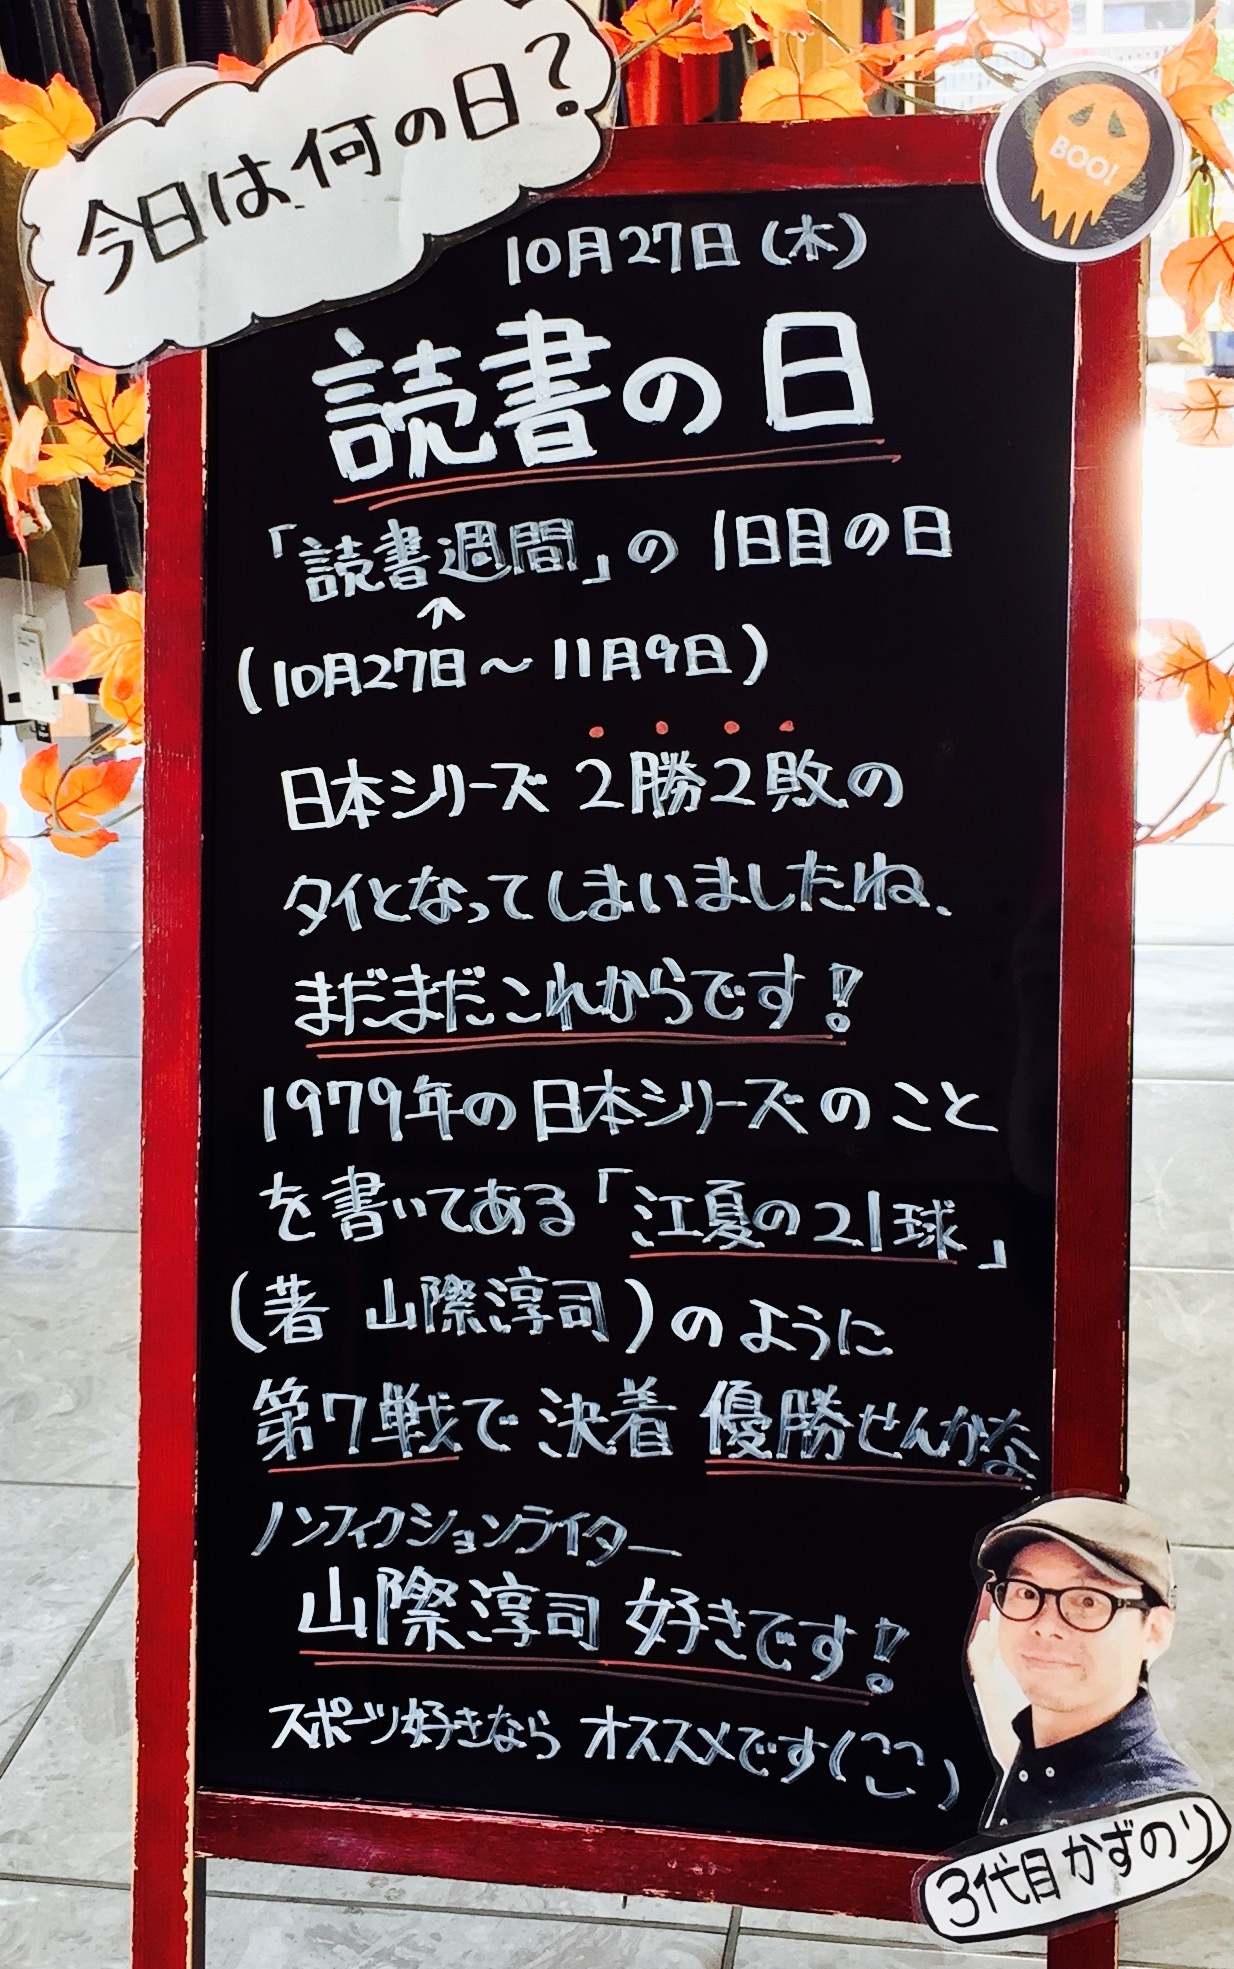 今日は何の日?
BOO!
10月27日(木)
読書の日
「読書週間」の1日目の日
↑
(10月27日〜11月9日)
日本シリーズ2勝2敗の
タイとなってしまいましたね、
まだまだこれからです!
1979年の日本シリーズのこと
を書いてある「江夏の21球」
(著 山際淳司)のように
第7戦で決着 優勝せんかな
ノンフィクションライター
山際淳司 好きです!
スポーツ好きなら オススメです(^^)
3代目かずのり